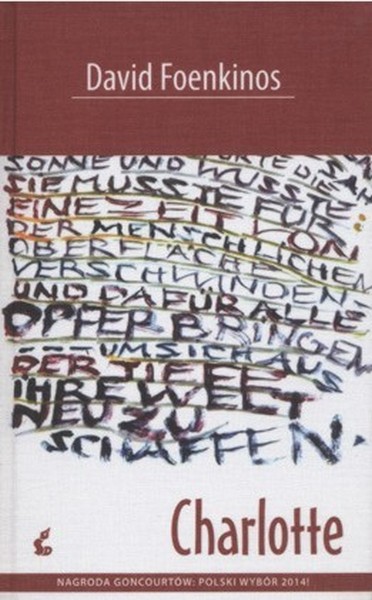 David Foenkinos
SONNE UND WUSSTE
SIE MUSSTE FÜR
EINE ZEIT VON
DER MENSCHLICHEN
OBERFLÄCHE
VERSCHWINDEN
UND DAFÜR ALLE
OPFER BRINGEN
UM SICH AUS
DER TIEFE
IHRE WELT
NEU ZU
SCHAFFEN.
Charlotte
NAGRODA GONCOURTÓW: POLSKI WYBÓR 2014!